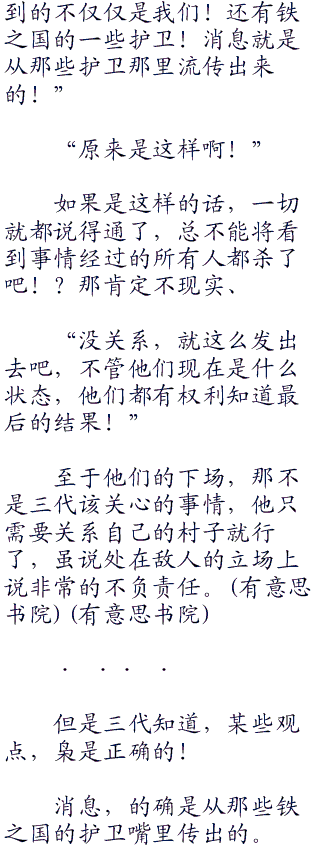 到的不仅仅是我们！还有铁
之国的一些护卫！消息就是
从那些护卫那里流传出来
的！”
“原来是这样啊！”
如果是这样的话，一切
就都说得通了，总不能将看
到事情经过的所有人都杀了
吧！？那肯定不现实、
“没关系，就这么发出
去吧，不管他们现在是什么
状态，他们都有权利知道最
后的结果！”
至于他们的下场，那不
是三代该关心的事情，他只
需要关系自己的村子就行
了，虽说处在敌人的立场上
说非常的不负责任。(有意思
书院) (有意思书院)
． ．．．
但是三代知道，某些观
点，枭是正确的！
消息，的确是从那些铁
之国的护卫嘴里传出的。